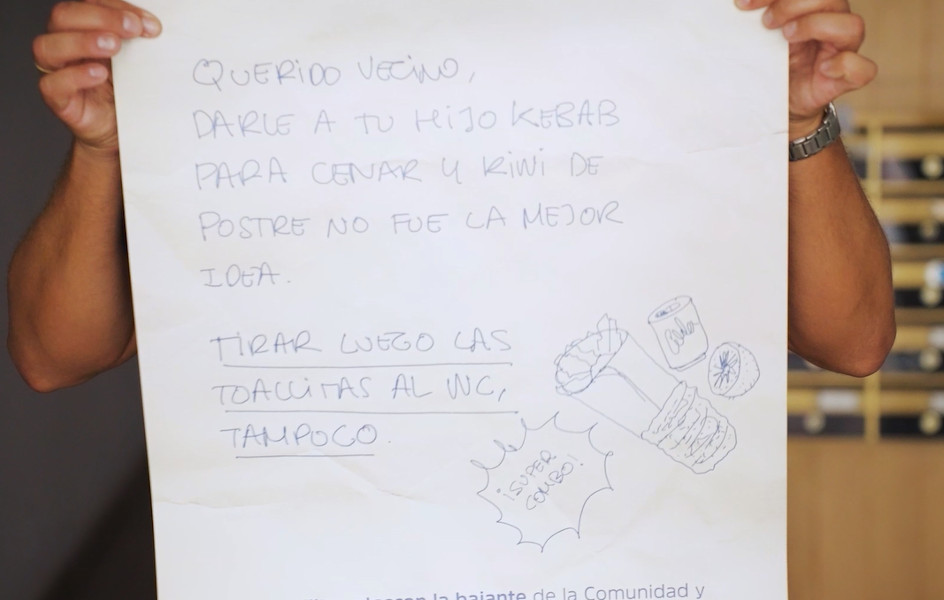 QUERIDO VECINO,
DARLE A TU HIJO KEBAB
PARA CENAR Y KIWI DE
POSTRE NO FUE LA MEJOR
IDEA.
TIRAR LUEGO LAS
TOALLITAS AL WC,
TAMPOCO.
¡SUPER
COMBO!
la bajante de la Comunidad y